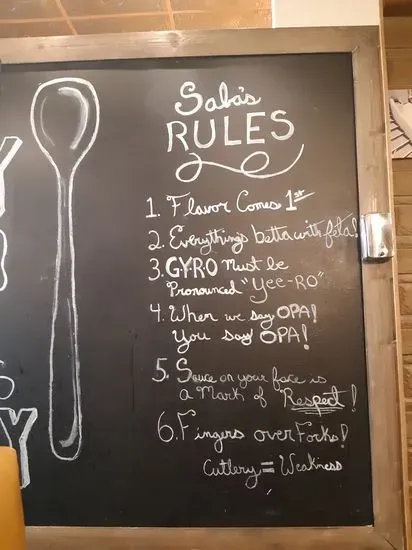 Saba's
RULES
1. Flavor Comes 1st
2. Everythings betta with feta!
3. G.Y.R.O Must be
Pronounced "Yee-RO"
4. When we say OPA!
You say OPA!
5. Sauce on your face is
a Mark of Respect!
6. Fingers over Forks!
Cutlery = Weakness